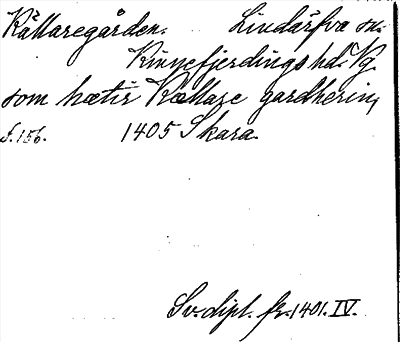 Källaregården. Lindärfva sn.
Kinnefjerdings hd. Vg.
som hætir Kællare gardherin,
s. 156. 1405 Skara.
Sv. dipl. fr. 1401. IV.